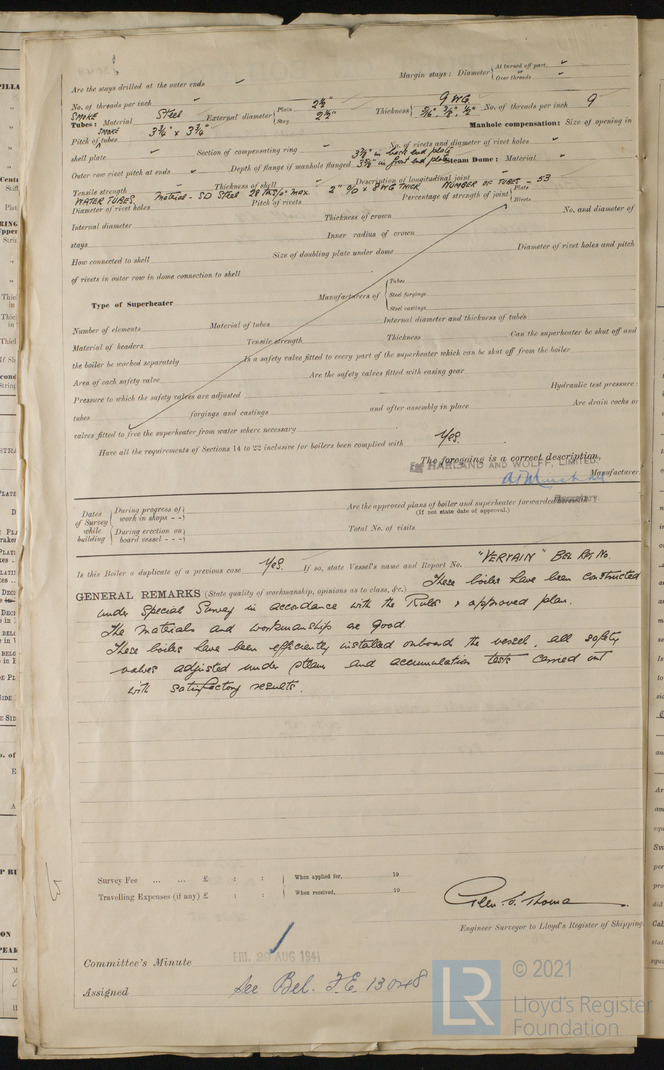 Margin stays: Diameter { At turned off part
Over threads
Are the stays drilled at the outer ends
No. of threads per inch
SMOKE Tubes: Material STEEL External diameter { Plain 2½"
Stay 2½"
Thickness { 9 WG
5/16", 3/8", 1/2" No. of threads per inch 9
Pitch of SMOKE tubes 3¾" x 3¾" Manhole compensation: Size of opening in
shell plate Section of compensating ring No. of rivets and diameter of rivet holes
Outer row rivet pitch at ends Depth of flange if manhole flanged 3⅜" in back end plate
3⅜" in front end plate Steam Dome: Material
Tensile strength Thickness of shell Description of longitudinal joint
WATER TUBES. Material - SD Steel 2" O/D x 8WG THICK NUMBER OF TUBES - 53
Diameter of rivet holes Pitch of rivets Percentage of strength of joint { Plate
Rivets
Internal diameter Thickness of crown No. and diameter of
stays Inner radius of crown
How connected to shell Size of doubling plate under dome Diameter of rivet holes and pitch
of rivets in outer row in dome connection to shell
Type of Superheater Manufacturers of { Tubes
Steel forgings
Steel castings
Number of elements Material of tubes Internal diameter and thickness of tubes
Material of headers Tensile strength Thickness Can the superheater be shut off and
the boiler be worked separately Is a safety valve fitted to every part of the superheater which can be shut off from the boiler
Area of each safety valve Are the safety valves fitted with easing gear
Pressure to which the safety valves are adjusted Hydraulic test pressure:
tubes forgings and castings and after assembly in place Are drain cocks or
valves fitted to free the superheater from water where necessary
Have all the requirements of Sections 14 to 22 inclusive for boilers been complied with Yes.
The foregoing is a correct description,
HARLAND AND WOLFF, LIMITED.
Manufacturer.
Secretary.
Dates of Survey while building { During progress of work in shops - -
During erection on board vessel - - -
Are the approved plans of boiler and superheater forwarded herewith
(If not state date of approval.)
Total No. of visits
Is this Boiler a duplicate of a previous case Yes. If so, state Vessel's name and Report No. "VERVAIN" BEL Rpt No.
GENERAL REMARKS (State quality of workmanship, opinions as to class, &c.) These boilers have been constructed
under Special Survey in accordance with the Rules & approved plan.
The materials and workmanship are good.
These boilers have been efficiently installed onboard the vessel, all safety
valves adjusted under steam and accumulation tests carried out
with satisfactory results.
Survey Fee ... ... £ : : When applied for, 19
Travelling Expenses (if any) £ : : When received, 19
Engineer Surveyor to Lloyd's Register of Shipping
Committee's Minute FRI. 29 AUG 1941
Assigned See Bel. F.E. 13048
LR © 2021
Lloyd's Register
Foundation